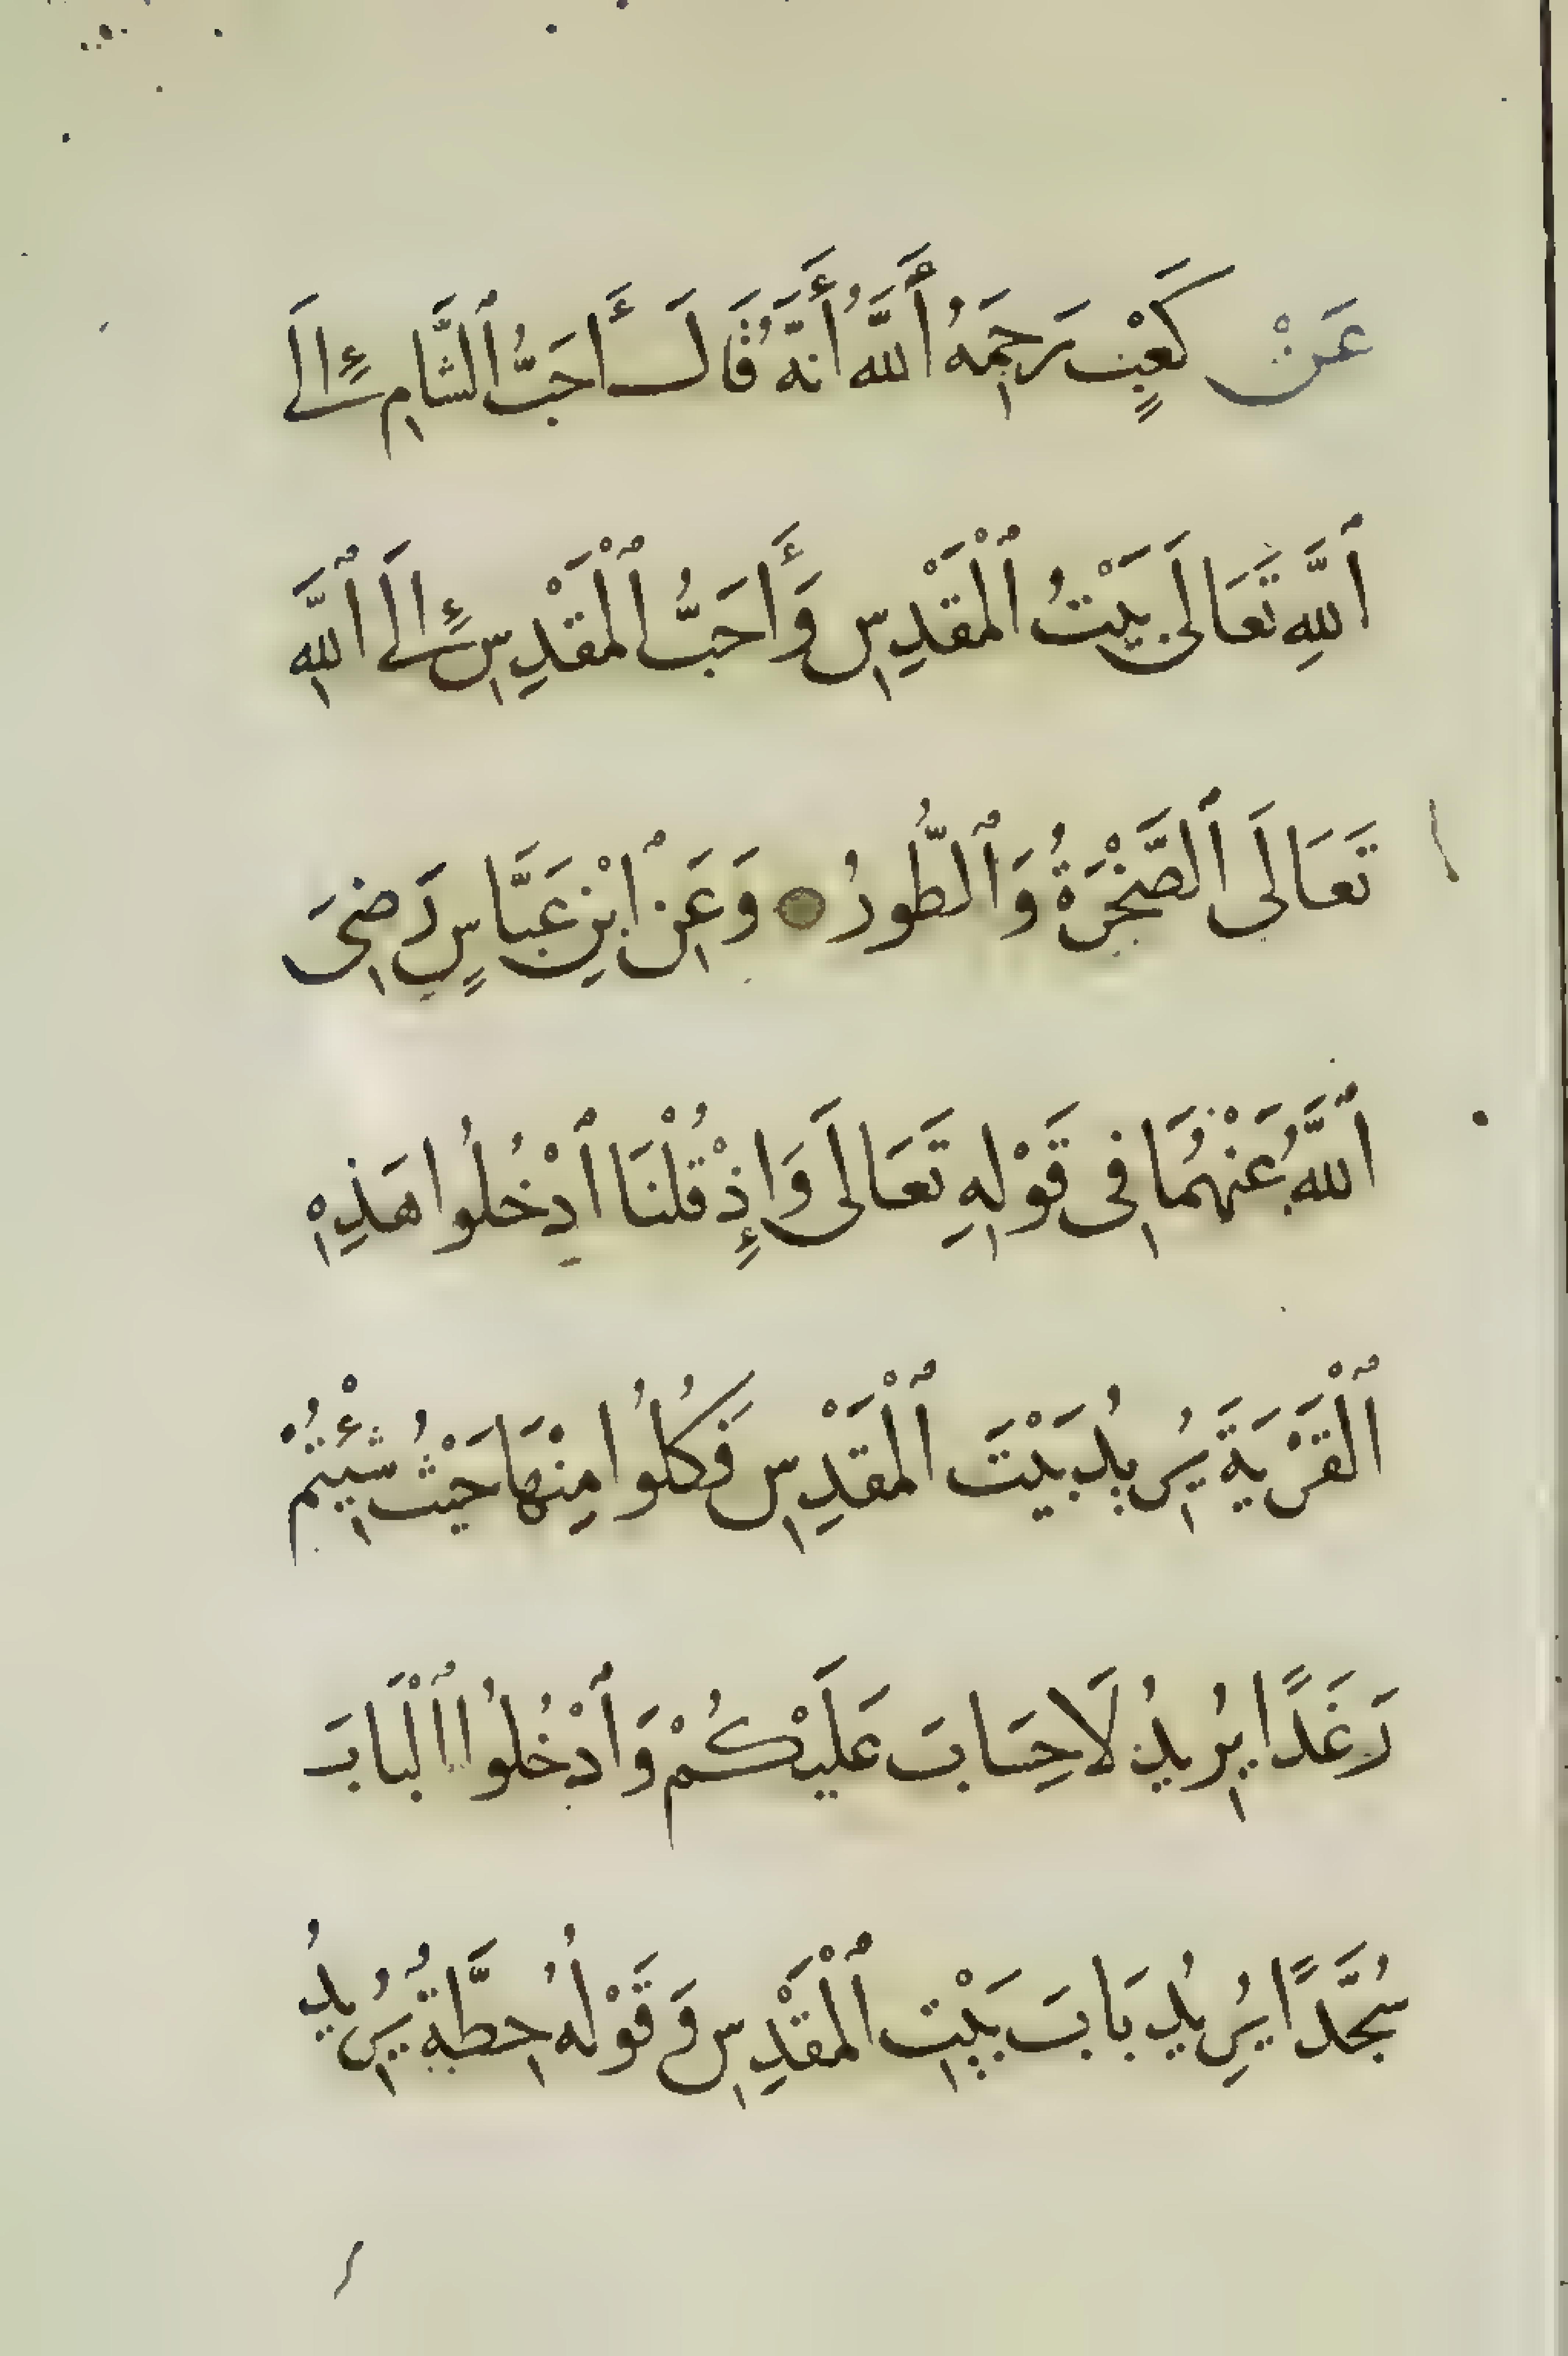 عَنْ كَعْبٍ رَحِمَهُ ٱللَّهُ أَنَّهُ قَالَ أَحَبُّ ٱلشَّامِ إِلَى
ٱللَّهِ تَعَالَى بَيْتُ ٱلْمَقْدِسِ وَأَحَبُّ ٱلْمَقْدِسِ إِلَى ٱللَّهِ
تَعَالَى ٱلصَّخْرَةُ وَٱلطُّورُ وَعَنِ ٱبْنِ عَبَّاسٍ رَضِىَ
ٱللَّهُ عَنْهُمَا فِى قَوْلِهِ تَعَالَى وَإِذْ قُلْنَا ٱدْخُلُوا هَذِهِ
ٱلْقَرْيَةَ يُرِيدُ بَيْتَ ٱلْمَقْدِسِ فَكُلُوا مِنْهَا حَيْثُ شِئْتُمْ
رَغَدًا يُرِيدُ لَا حِسَابَ عَلَيْكُمْ وَٱدْخُلُوا ٱلْبَابَ
سُجَّدًا يُرِيدُ بَابَ بَيْتِ ٱلْمَقْدِسِ وَقَوْلُهُ حِطَّةٌ يُرِيدُ